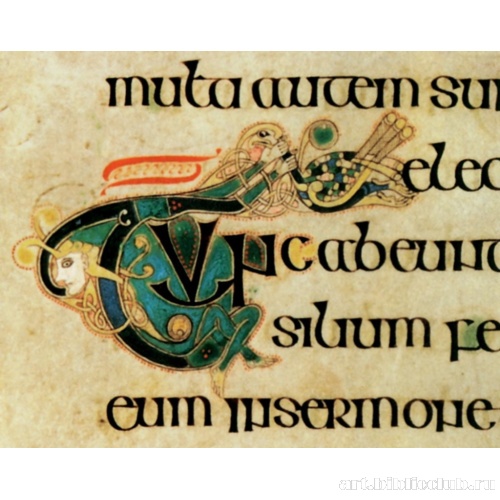 multi autem sun
elec
Tunc abeunt
silium fe
eum insermone
art.biblioclub.ru